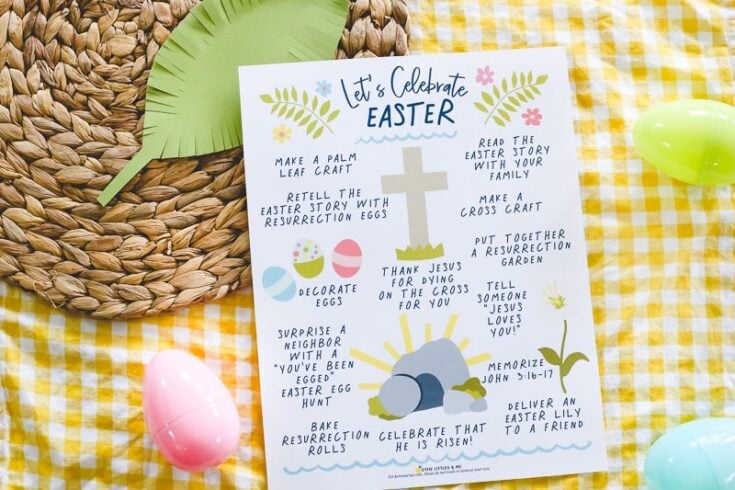 Let's Celebrate
EASTER
MAKE A PALM
LEAF CRAFT
READ THE
EASTER STORY
WITH YOUR
FAMILY
RETELL THE
EASTER STORY WITH
RESURRECTION EGGS
MAKE A
CROSS CRAFT
PUT TOGETHER
A RESURRECTION
GARDEN
DECORATE
EGGS
THANK JESUS
FOR DYING
ON THE CROSS
FOR YOU
TELL
SOMEONE
"JESUS
LOVES
YOU!"
SURPRISE A
NEIGHBOR
WITH A
"YOU'VE BEEN
EGGED"
EASTER EGG
HUNT
MEMORIZE
JOHN 3:16-17
DELIVER AN
EASTER LILY
TO A FRIEND
BAKE
RESURRECTION
ROLLS
CELEBRATE THAT
HE IS RISEN!